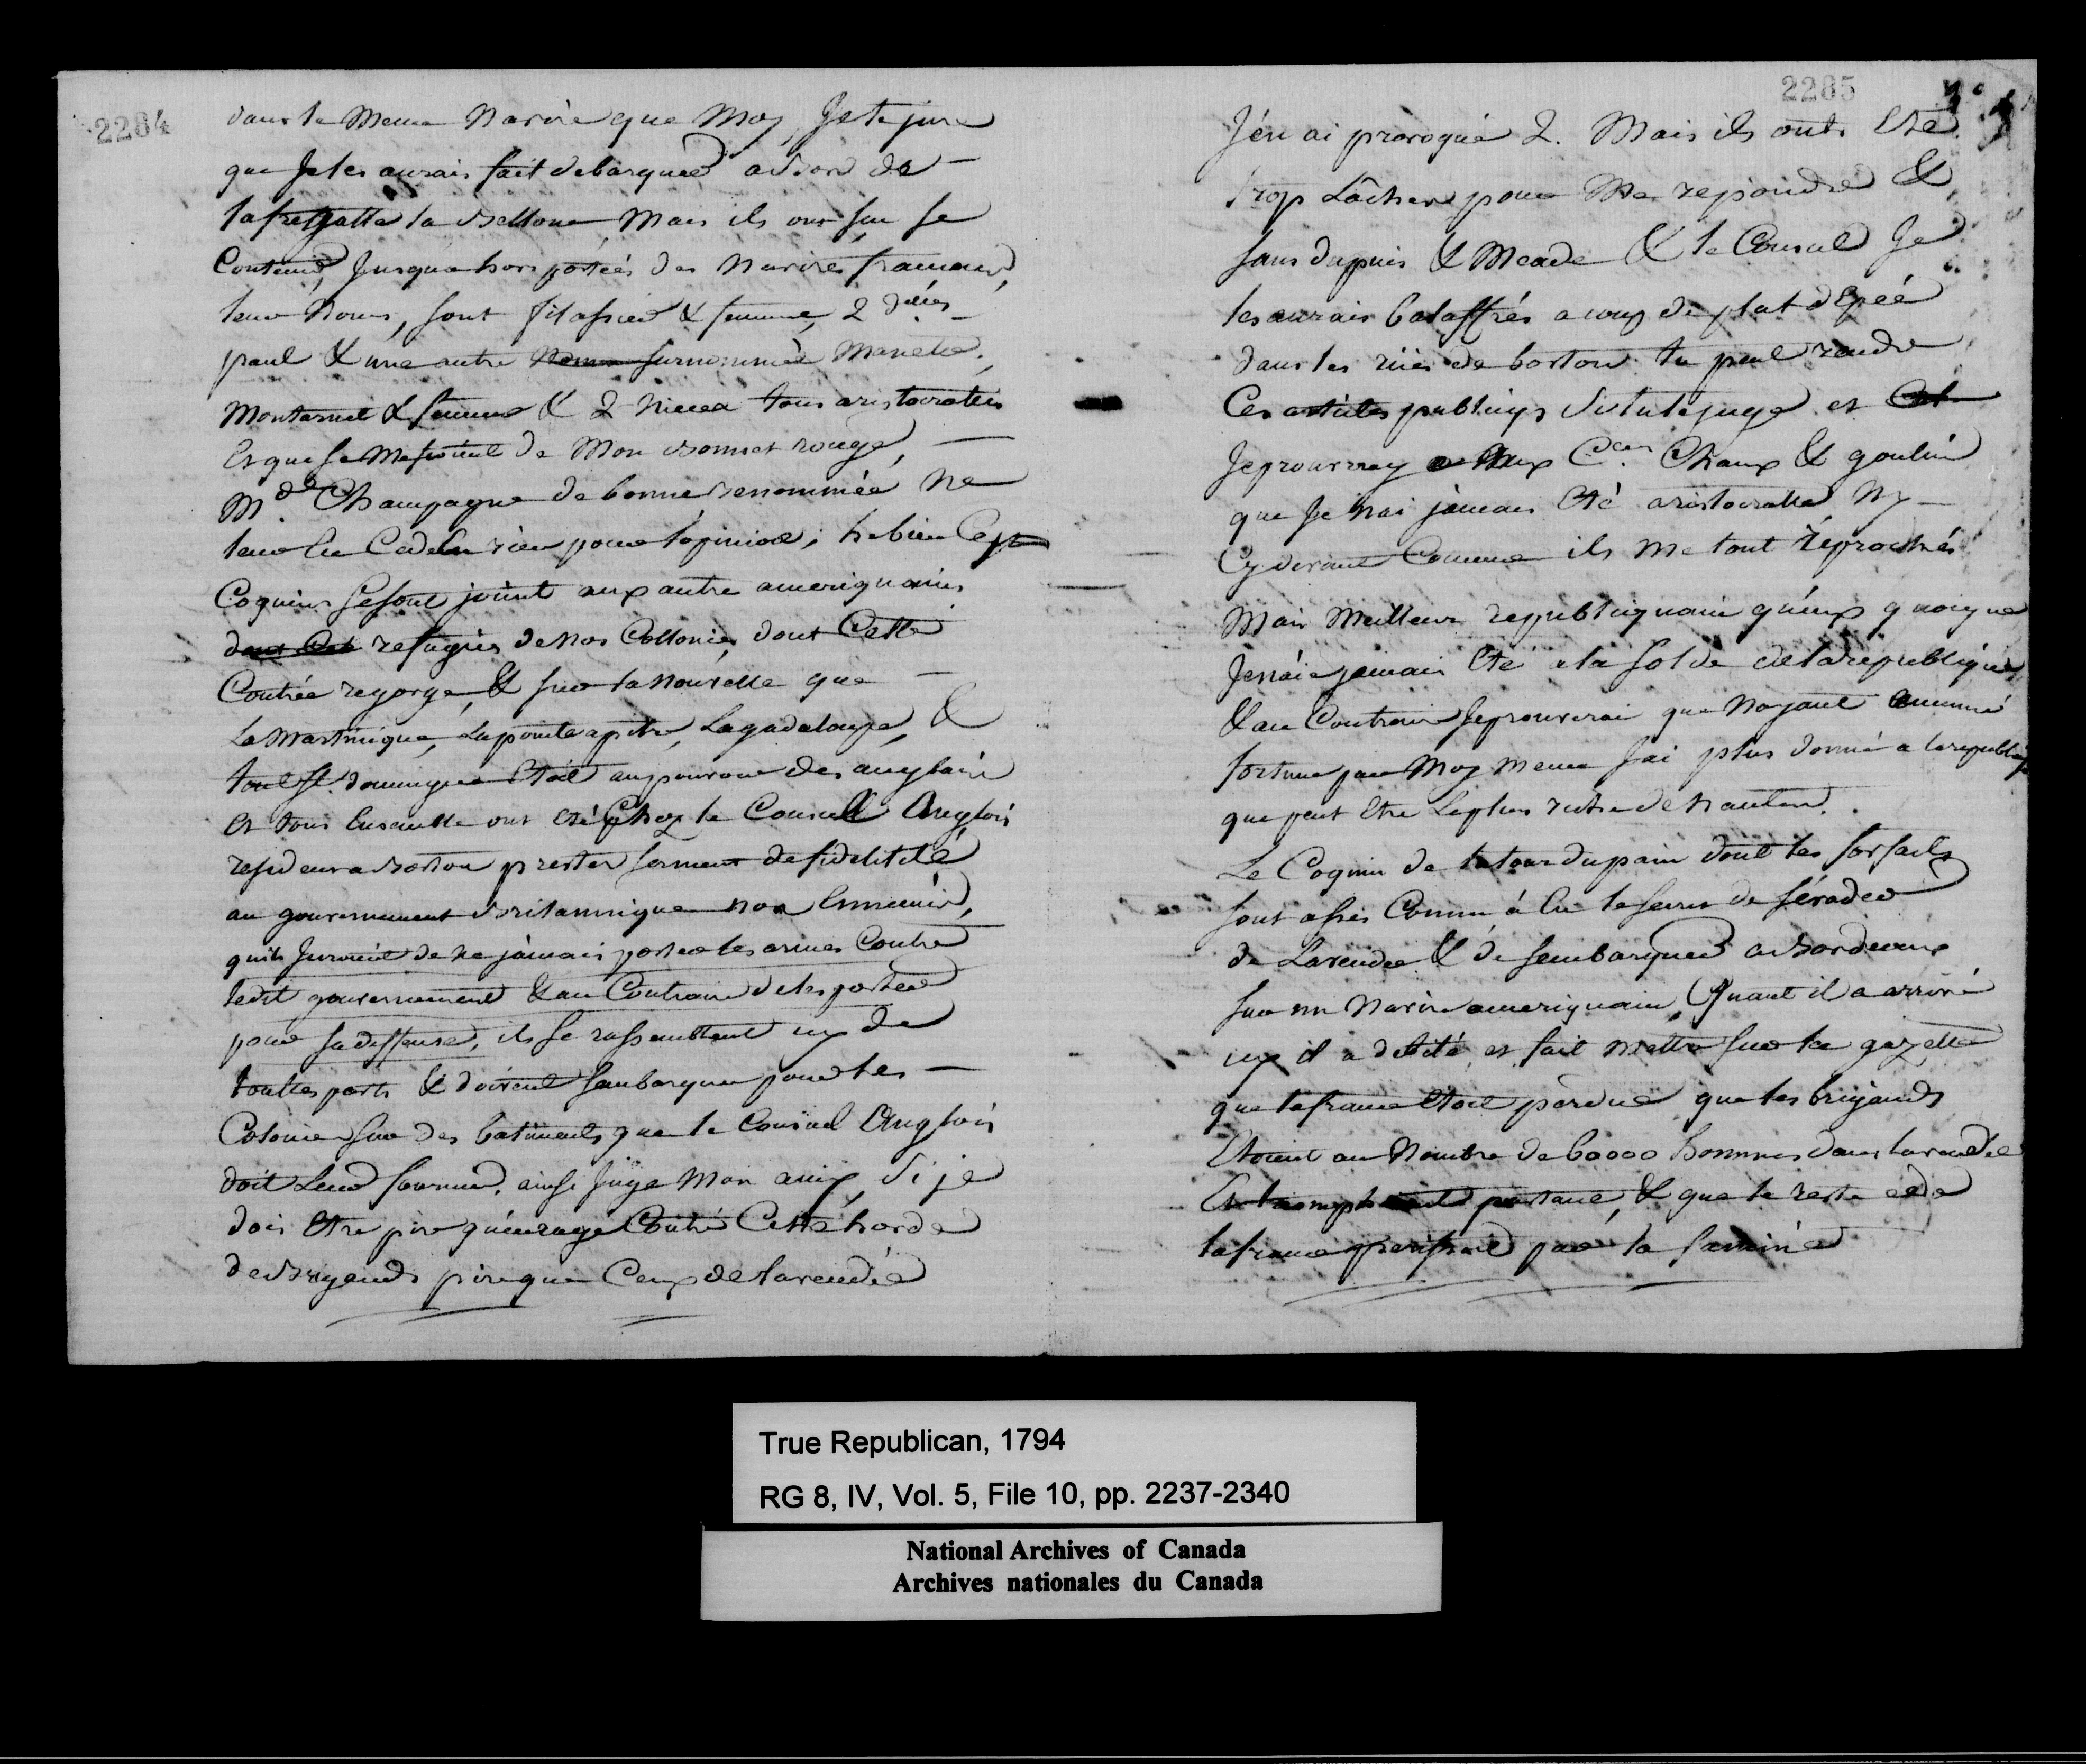 2284
dans le meme navire que moy, Je te jure
que Je les aurais fait debarquer a bord de
la freigatte la Bellone Mais ils ont Sue se
Contenir, Jusqua hors portées des navires francais,
leur Noms, sont filassier & femme, 2 dlles
paul & une autre surnommée Manette,
Montarnel & femme & 2 nieces tous aristocrattes
Et qui se mefioient de Mon bonnet rouge,
Mde Champagne de bonne Renommée ne
leur En Cede En rien pour lopinion; he bien Ces
Coquins se sont joint aux autre ameriquains
refugiés de nos Collonies dont Cette
Contrée regorge, & sur la nouvelle que
La Martinique, La pointe apitre, La gadaloupe, &
tout St. domingue Etoit au pouvoir des anglais
et tous Ensemble ont eté Chez le Consul Anglois
resident a Boston prester serment de fidelitité
au gouvernement Britannique nos Ennemis,
quils Juroient de ne jamais porter les armes Contre
ledit gouvernement & au Contraire de les porter
pour sa deffense, ils se rassemblent icy de
touttes parts & doivent sembarquer pour les
Colonies sur des batiments que le Consul Anglois
doit Leur fournir, ainsi Juge Mon amy, Si je
dois Etre pire quenragé Contre Cette horde
de Brigands pire que Ceux de la vendée
2285
J'en ai provoqué 2. Mais ils onts Eté
trop Lâches pour Me repondre &
sans dupuis & Meade & le Consul Je
les aurais balaffrés a coup de plat d'Epée
dans les rües de boston tu peut rendre
Ces articles publicqs Si tu le juge et
Je prouvray aux Cens Chaux & goulin
que Je nai jamais Eté aristocratte Ny
Cy devant Comme ils me l'ont reproché
Mais Meilleur republiquain qu'eux quoique
Je n'aie jamais Eté a la solde de la republique,
& au Contraire Je prouverai que Nayant aucune
fortune par Moy meme J'ai plus donné a la republiq
que peut Etre Le plus riche de nantes.
Le Coquin de la tour dupain dont les forfaits
sont assés Connu á Eu le secret de Sévader
de Lavendée & de sembarquer a Bordeaux
sur un Navire ameriquain, Quant il a arrivé
icy il a debité et fait mettre sur les gazette
que la france Etoit perdue que les brigands
Etoient au Nombre de 60000 hommes dans la vendée
Et partout, & que le reste de
la france perissoit par la famine
True Republican, 1794
RG 8, IV, Vol. 5, File 10, pp. 2237-2340
National Archives of Canada
Archives nationales du Canada